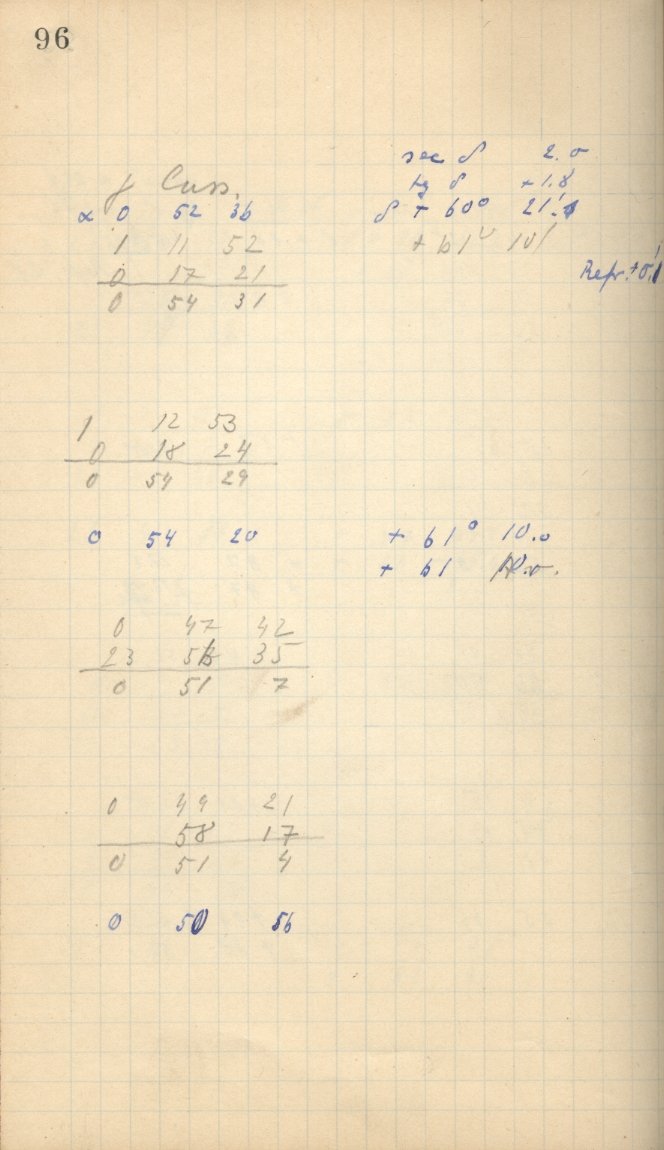 96
sec δ 2.0
γ Cass. tg δ +1.8
α 0 52 36 δ + 60° 21'.1
1 11 52 + 61° 10'
0 17 21 Refr. +0.'1
0 54 31
1 12 53
0 18 24
0 54 29
0 54 20 + 61° 10.0
+ 61 10.0.
0 47 42
23 56 35
0 51 7
0 49 21
58 17
0 51 4
0 50 56